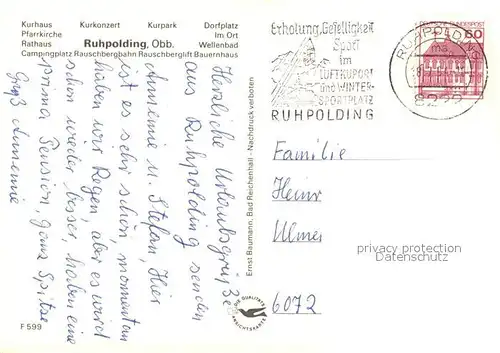 Kurhaus Kurkonzert Kurpark Dorfplatz
Pfarrkirche Im Ort
Rathaus Ruhpolding, Obb. Wellenbad
Campingplatz Rauschbergbahn Rauschberglift Bauernhaus
Herzliche Urlaubsgrüße
aus Ruhpolding senden
Annemie u. Stefan, Hier
ist es sehr schön, momentan
haben wir Regen, aber es wird
schon wieder besser, haben eine
prima Pension, ganz Spitze
Gruß Annemie
F 599
Ernst Baumann, Bad Reichenhall - Nachdruck verboten
DIE QUALITÄTS
ANSICHTSKARTE
Erholung, Geselligkeit
Sport
im
LUFTKURORT
und WINTER-
SPORTPLATZ
RUHPOLDING
RUHPOLDING
ma
8222
DEUTSCHE BUNDESPOST
60
Familie
Heinz
Ulmer
6072
privacy protection
Datenschutz